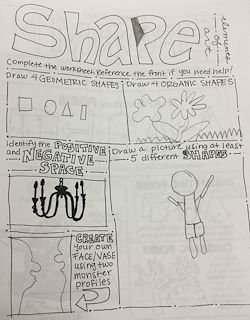 Shape
elements
of
art
Complete the worksheet. Reference the front if you need help!
Draw 4 GEOMETRIC SHAPES
Draw 4 ORGANIC SHAPES
Identify the POSITIVE
and NEGATIVE
SPACE
Draw a picture using at least
5 different SHAPES
CREATE
your own
FACE/VASE
using two
monster
profiles